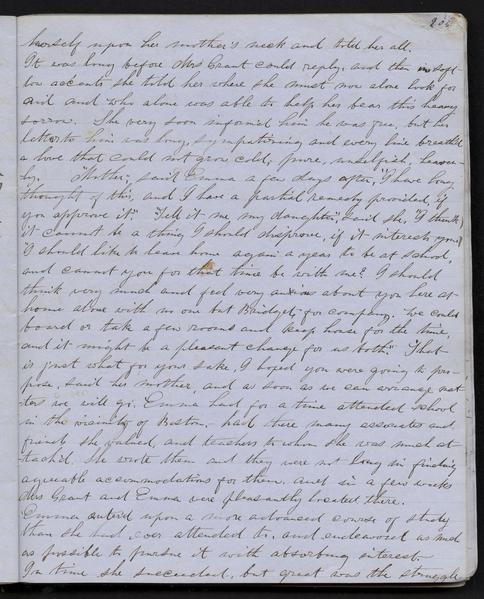 205
herself upon her mother's neck and told her all.
It was long before Mrs Grant could reply, and then in soft
low accents she told her where she must now alone look for
aid and who alone was able to help her bear this heavy
sorrow. She very soon informed him he was free, but her
letter to him was long, sympathising and every line breathed
a love that could not grow cold, pure, unselfish, heaven-
ly. "Mother," said Emma a few days after, "I have long
thought of this, and I have a partial remedy provided, if
you approve it." "Tell it me, my daughter," said she, "I think
it cannot be a thing I should disprove, if it interests you."
"I should like to leave home again a year, to be at school,
and cannot you for that time be with me? I should
think very much and feel very anxious about you here at
home alone with no one but Bridget, for company. We could
board or take a few rooms and keep house for the time,
and it might be a pleasant change for us both." "That
is just what for your sake, I hoped you were going to pro-
pose, said his mother, and as soon as we can arrange mat-
ters we will go. Emma had for a time attended school
in the vicinity of Boston, had there many associates and
friends she valued, and teachers to whom she was much at-
tach'd. She wrote them and they were not long in finding
agreeable accommodations for them. And in a few weeks
Mrs Grant and Emma were pleasantly located there.
Emma entered upon a more advanced course of study
than she had ever attended to, and endeavored as much
as possible to pursue it with absorbing interest.
In time she succeeded, but great was the struggle